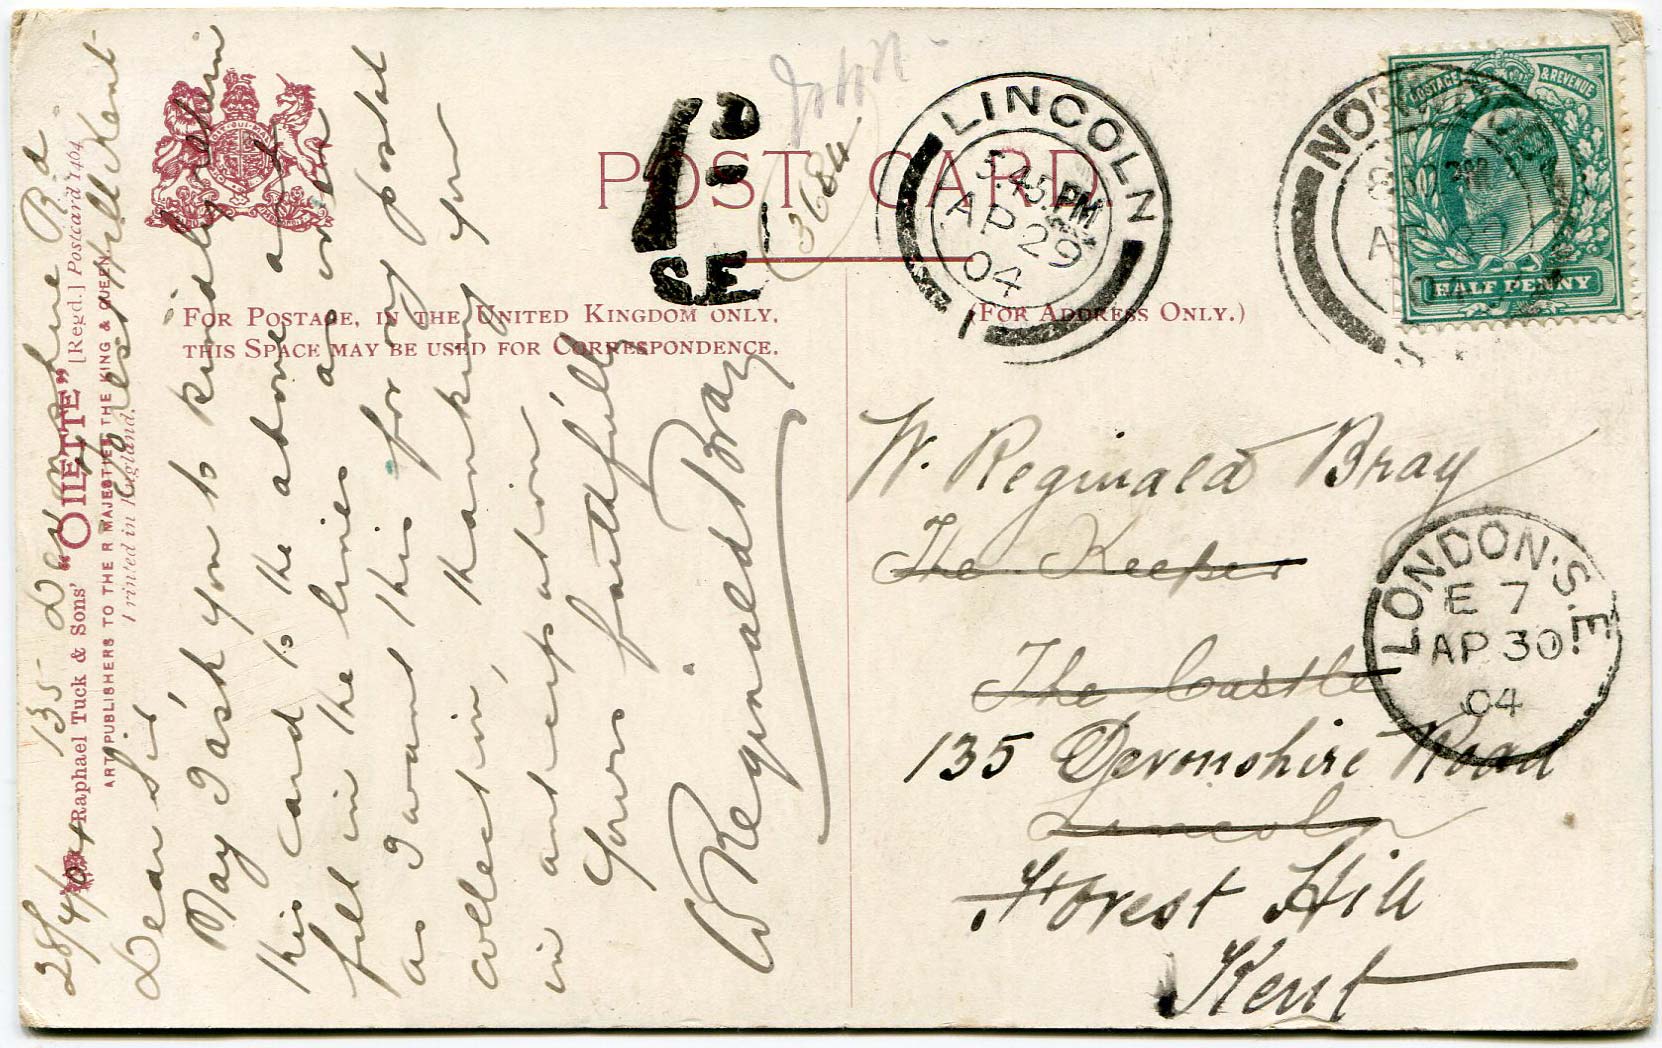 POST CARD
FOR POSTAGE, IN THE UNITED KINGDOM ONLY,
THIS SPACE MAY BE USED FOR CORRESPONDENCE.
(FOR ADDRESS ONLY.)
Raphael Tuck & Sons' "OILETTE" [Regd.] Postcard 1404
ART PUBLISHERS TO THEIR MAJESTIES THE KING & QUEEN
Printed in England.
28/4/04 135 Devonshire Rd
Forest Hill Kent
Dear Sir
May I ask you to kindly
this card to the above
fill in the lines as
as I want this for my postal
collection, thanking you
in anticipation
Yours faithfully
W Reginald Bray
1D
S.E.
John
3684
LINCOLN
5.45 PM
AP 29
04
1
POSTAGE & REVENUE
HALF PENNY
W. Reginald Bray
The Keeper
The Castle
135 Devonshire Road
Lincoln
Forest Hill
Kent
LONDON. S.E.
E 7
AP 30
04